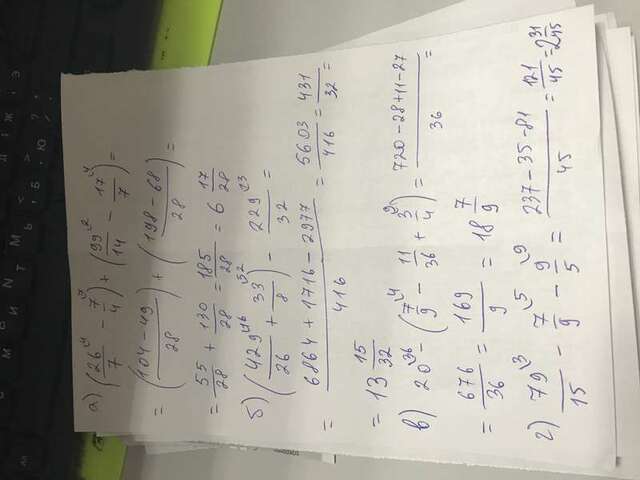 а) (26/7 - 7/4) + (99/14 - 17/7) =
= (104 - 49 / 28) + (198 - 68 / 28) =
= 55/28 + 130/28 = 185/28 = 6 17/28
б) (429/26 + 33/8) - 229/32 =
= 6864 + 1716 - 2977 / 416 = 5603/416 = 431/32 =
= 13 15/32
в) 20 - (7/9 - 11/36 + 3/4) = 720 - 28 + 11 - 27 / 36 =
= 676/36 = 169/9 = 18 7/9
г) 79/15 - 7/9 - 9/5 = 237 - 35 - 81 / 45 = 121/45 = 2 31/45